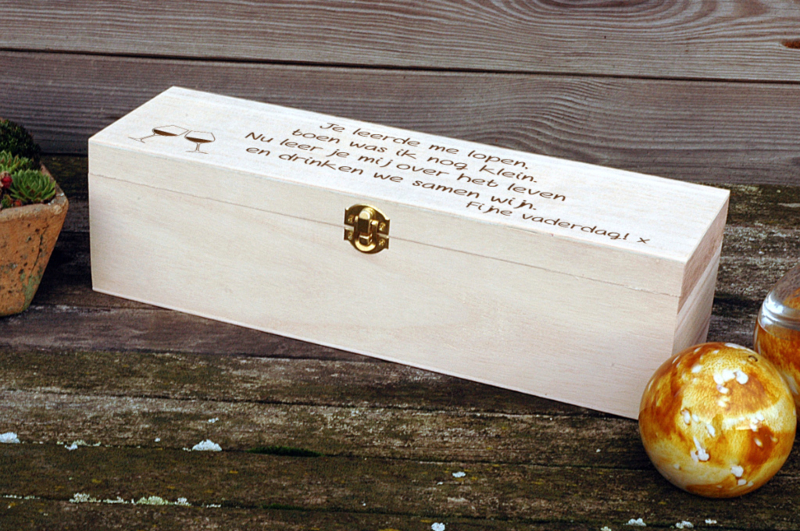 Je leerde me lopen,
toen was ik nog klein.
Nu leer je mij over het leven
en drinken we samen wijn.
Fijne vaderdag! x